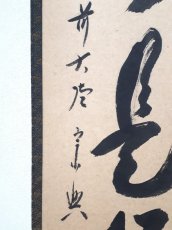 是
前大徳 宗興